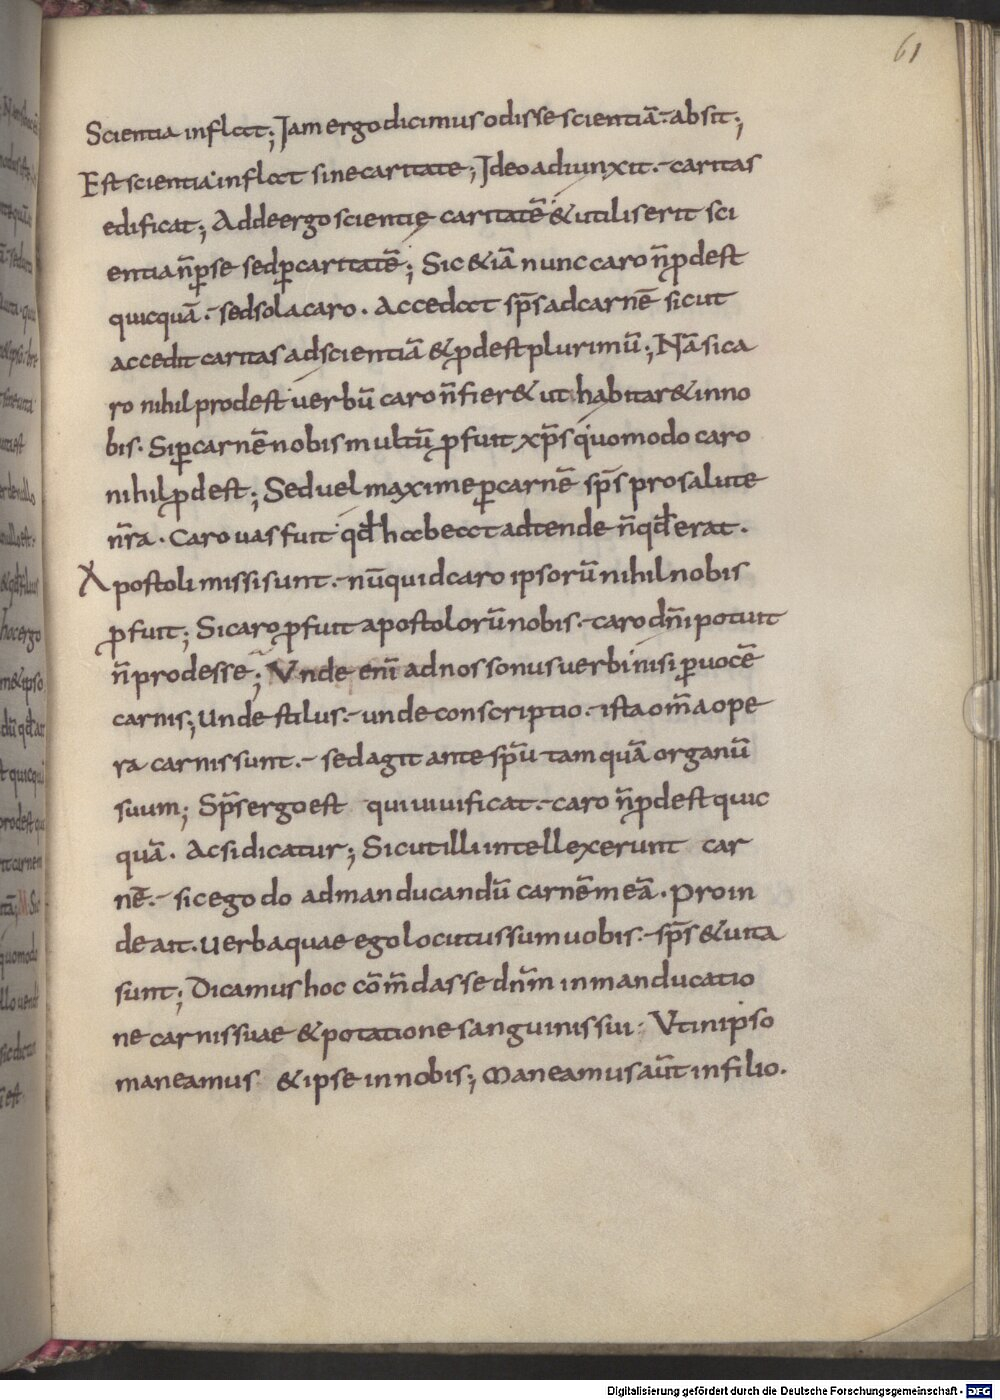 61
Scientia inflat; Jam ergo dicimus odisse scientiā. absit;
Est scientia inflat sine caritate; Jdeo adiunxit. caritas
edificat; Adde ergo scientię caritatē & utilis erit sci
entia n̄ ꝑ se sed ꝑ caritatē; Sic & iā nunc caro n̄ ꝓdest
quicquā. sed sola caro. Accedat sp̄s ad carnē sicut
accedit caritas ad scientiā & ꝓdest plurimū; Nā si ca
ro nihil prodest uerbū caro n̄ fier& ut habitar& in no
bis. Si ꝑ carnē nobis multū ꝓfuit xp̄s quomodo caro
nihil ꝓdest; Sed uel maxime ꝑ carnē sp̄s pro salute
nr̄a. Caro uas fuit qđ habebat adtende n̄ qđ erat.
Apostoli missi sunt. nūquid caro ipsorū nihil nobis
ꝓfuit; Si caro ꝓfuit apostolorū nobis. caro dn̄i potuit
n̄ prodesse; Vnde enī ad nos sonus uerbi nisi ꝑ uocē
carnis; Unde stilus. unde conscriptio. ista om̄a ope
ra carnis sunt. sed agit ante sp̄u tam quā organū
suum; Sp̄s ergo est qui uiuificat. caro n̄ ꝓdest quic
quā. Ac si dicatur; Sicut illi intellexerunt car
nē. sic ego do ad manducandū carnē meā. Proin
de ait. uerba quae ego locutus sum uobis. sp̄s & uita
sunt; Dicamus hoc cōm̄dasse dn̄m in manducatio
ne carnis suae & potatione sanguinis sui. Vt in ipso
maneamus & ipse in nobis; Maneamus aūt in filio.
Digitalisierung gefördert durch die Deutsche Forschungsgemeinschaft - DFG